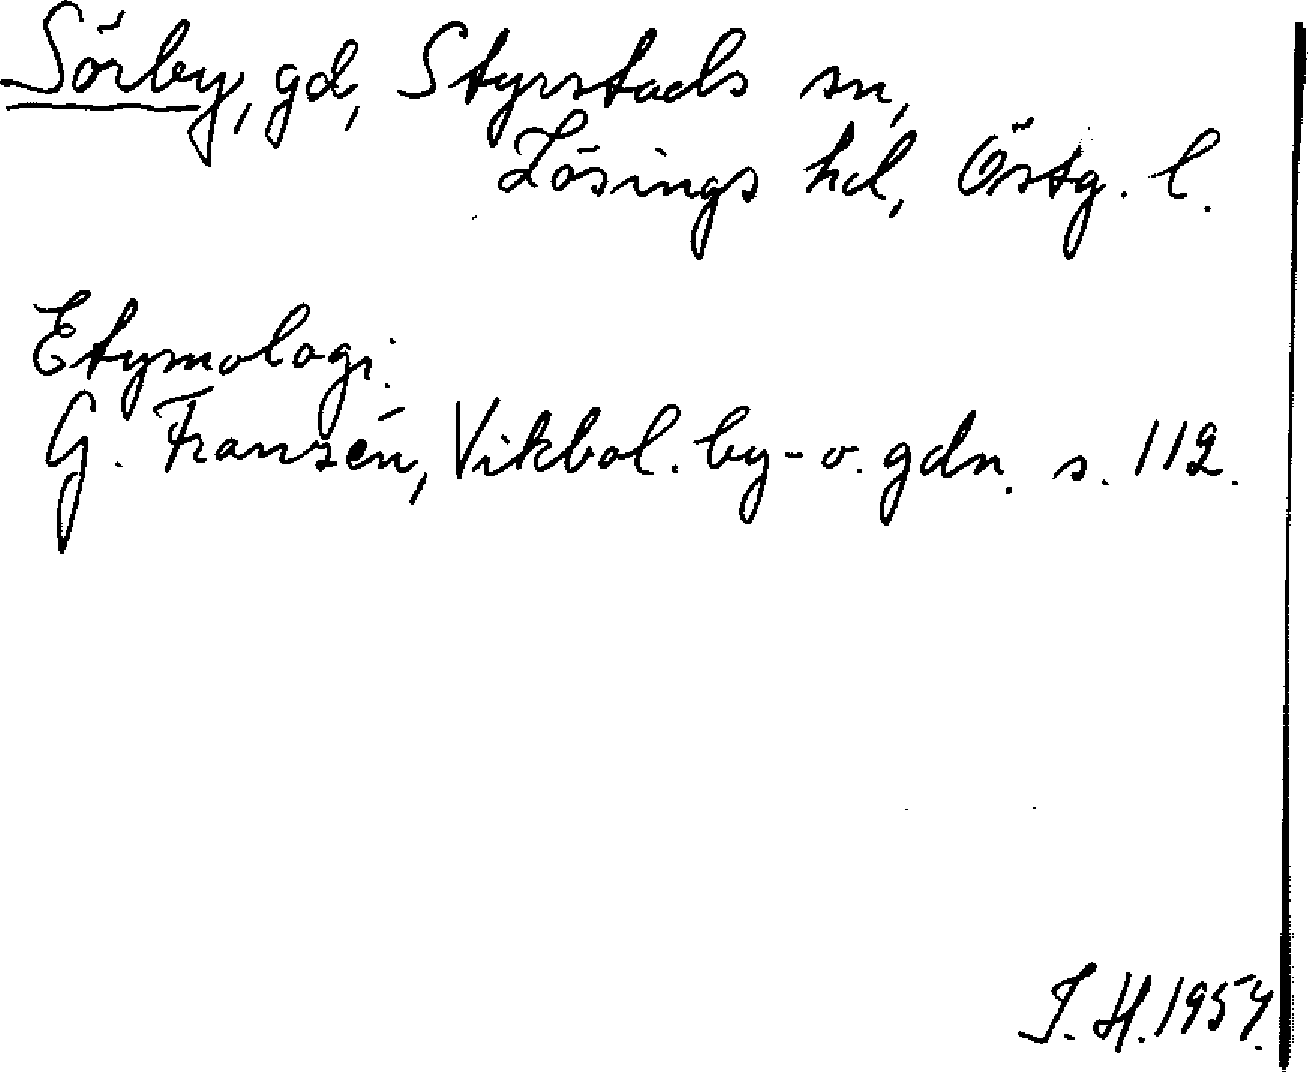 Sörby, gd, Styrstads sn,
Lösings hd, Östg. l.
Etymologi.
G. Franzén, Vikbol. by- o. gdn. s. 112.
I. H. 1954.